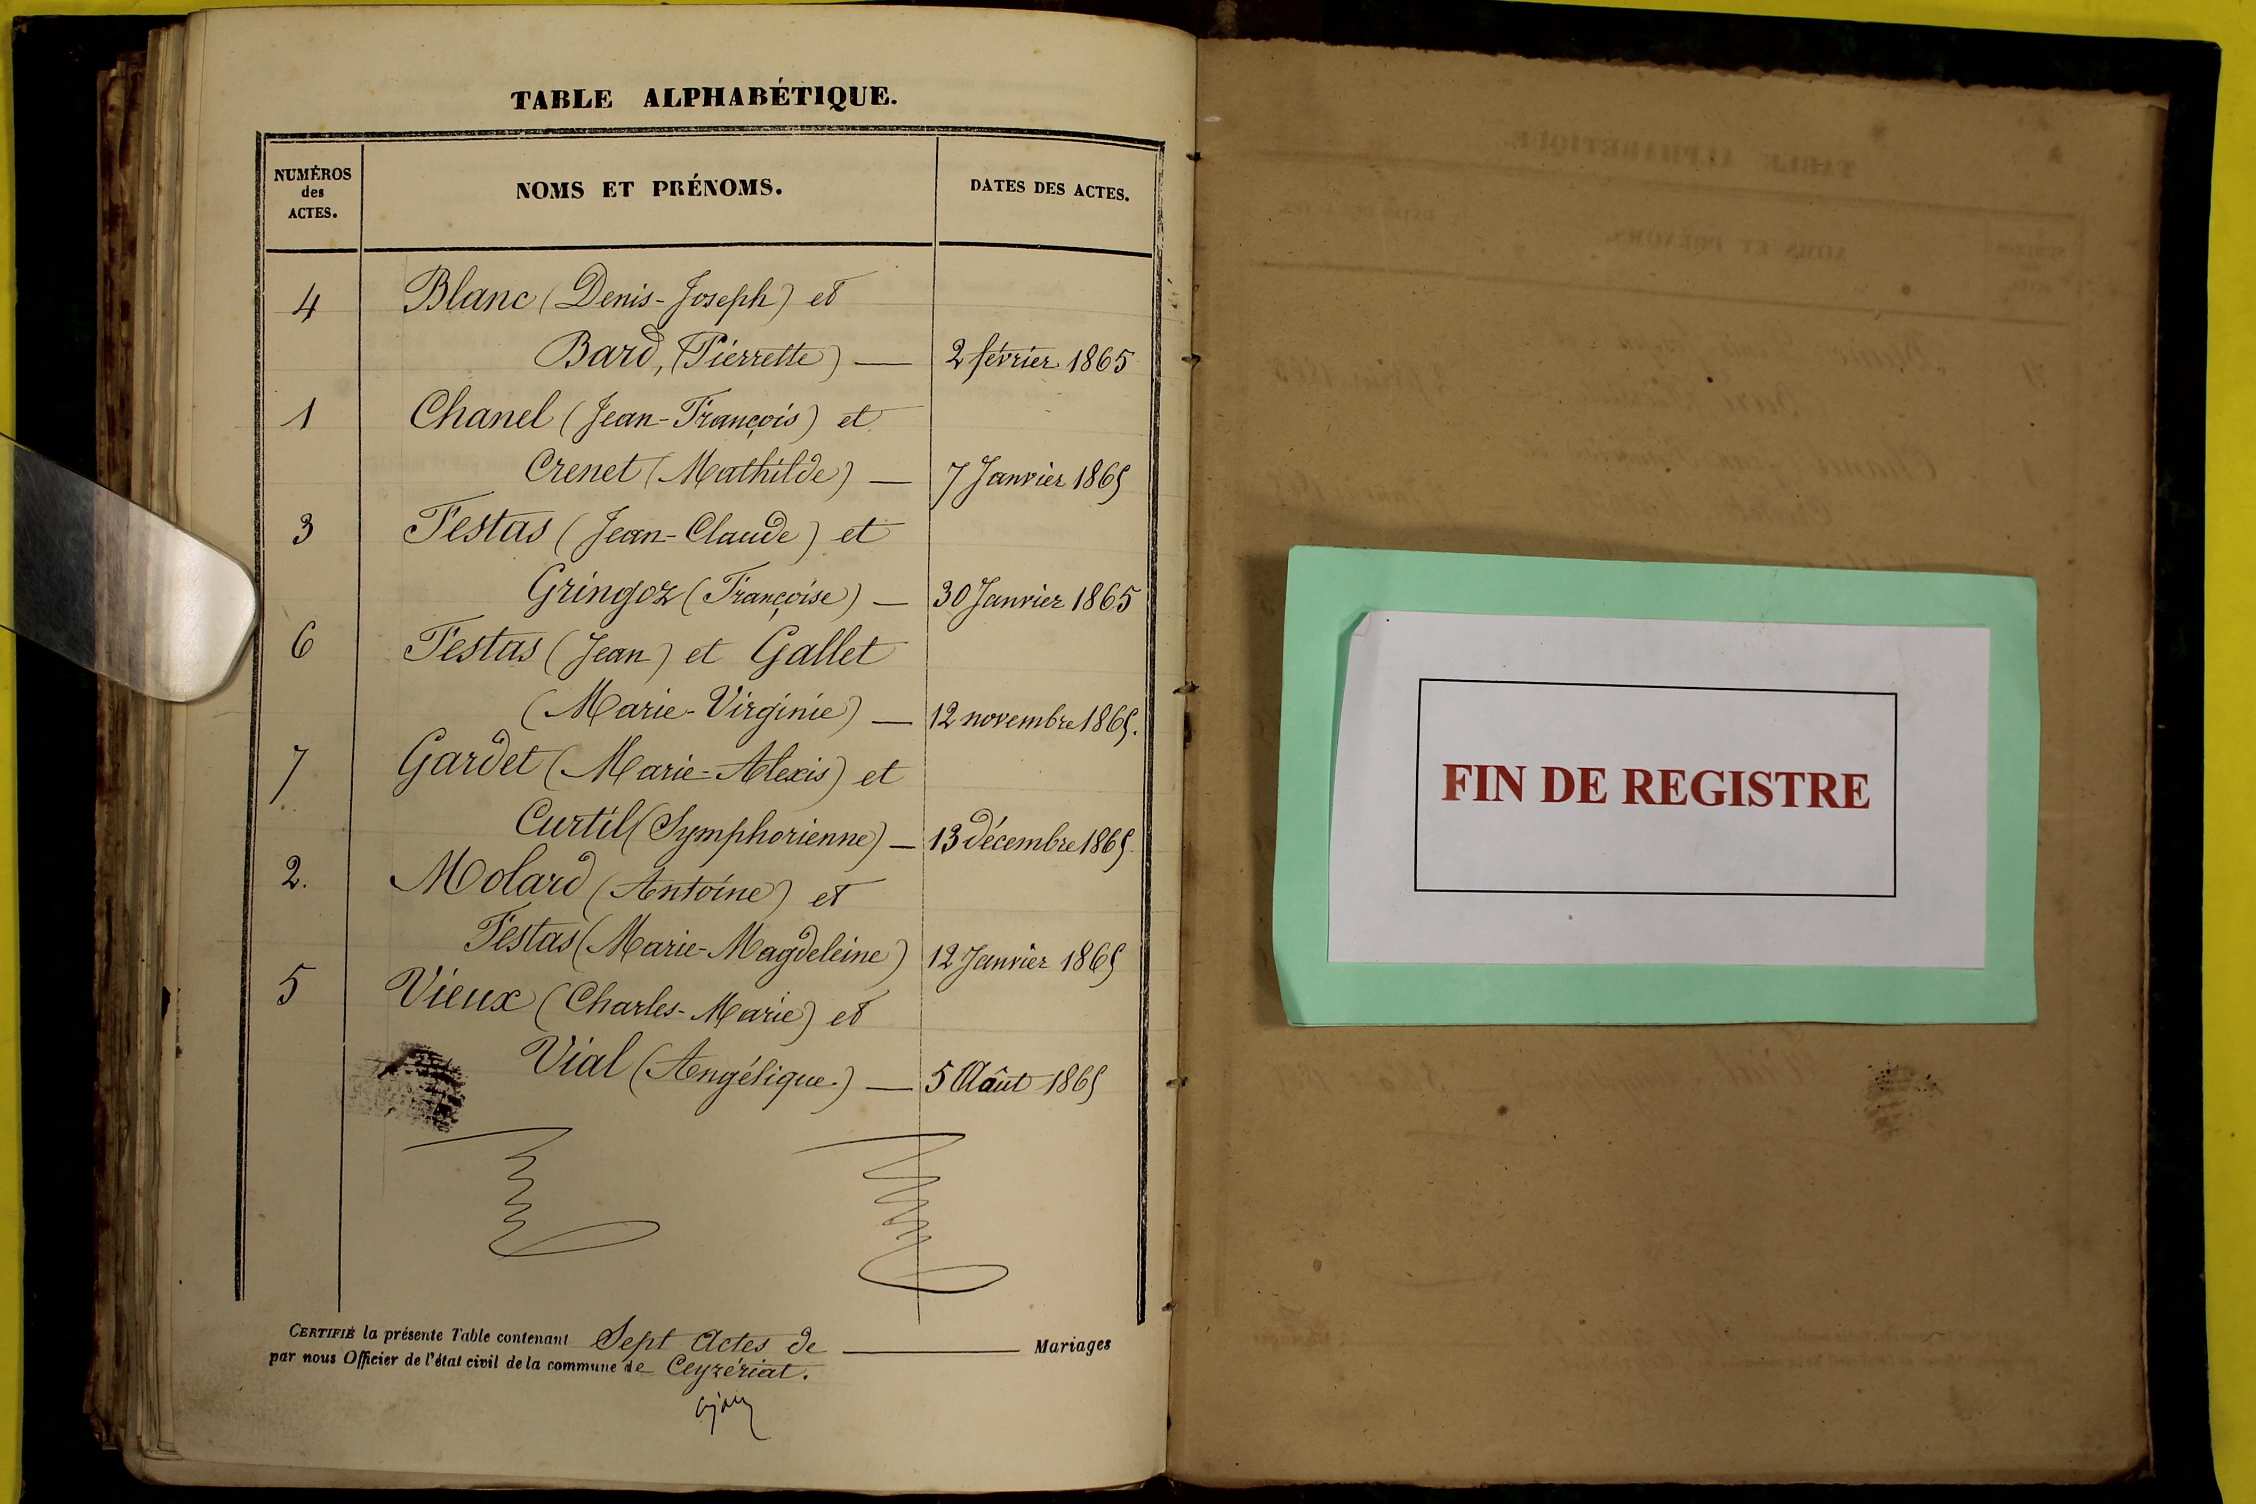 TABLE ALPHABÉTIQUE.
NUMÉROS
des
ACTES.
NOMS ET PRÉNOMS.
DATES DES ACTES.
4 Blanc (Denis-Joseph) et
Bard, (Pierrette) — 2 février 1865
1 Chanel (Jean-François) et
Crenet (Mathilde) — 7 Janvier 1865
3 Festas (Jean-Claude) et
Gringoz (Françoise) — 30 Janvier 1865
6 Festas (Jean) et Gallet
(Marie-Virginie) — 12 novembre 1865.
7 Gardet (Marie-Alexis) et
Curtil (Symphorienne) — 13 décembre 1865
2. Molard (Antoine) et
Festas (Marie-Magdeleine) 12 Janvier 1865
5 Vieux (Charles-Marie) et
Vial (Angélique.) — 5 Août 1865
CERTIFIÉ la présente Table contenant Sept Actes de — Mariages
par nous Officier de l'état civil de la commune de Ceyzériat.
FIN DE REGISTRE